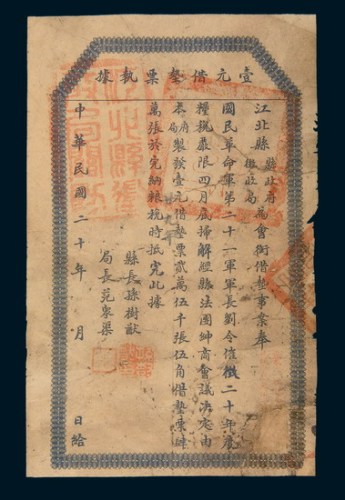 壹元借墊票執據
江北縣縣政府徵收局為會銜借墊事案奉
國民革命軍第二十一軍軍長劉令催徵二十年度
糧稅嚴限四月底掃解經縣法團紳商會議決定由
本府局製欵壹元借墊票貳萬伍千張伍角借墊票肆
萬張於完納糧稅時抵完此據
縣長孫樹猷
局長范眾渠
中華民國二十年 月 日給